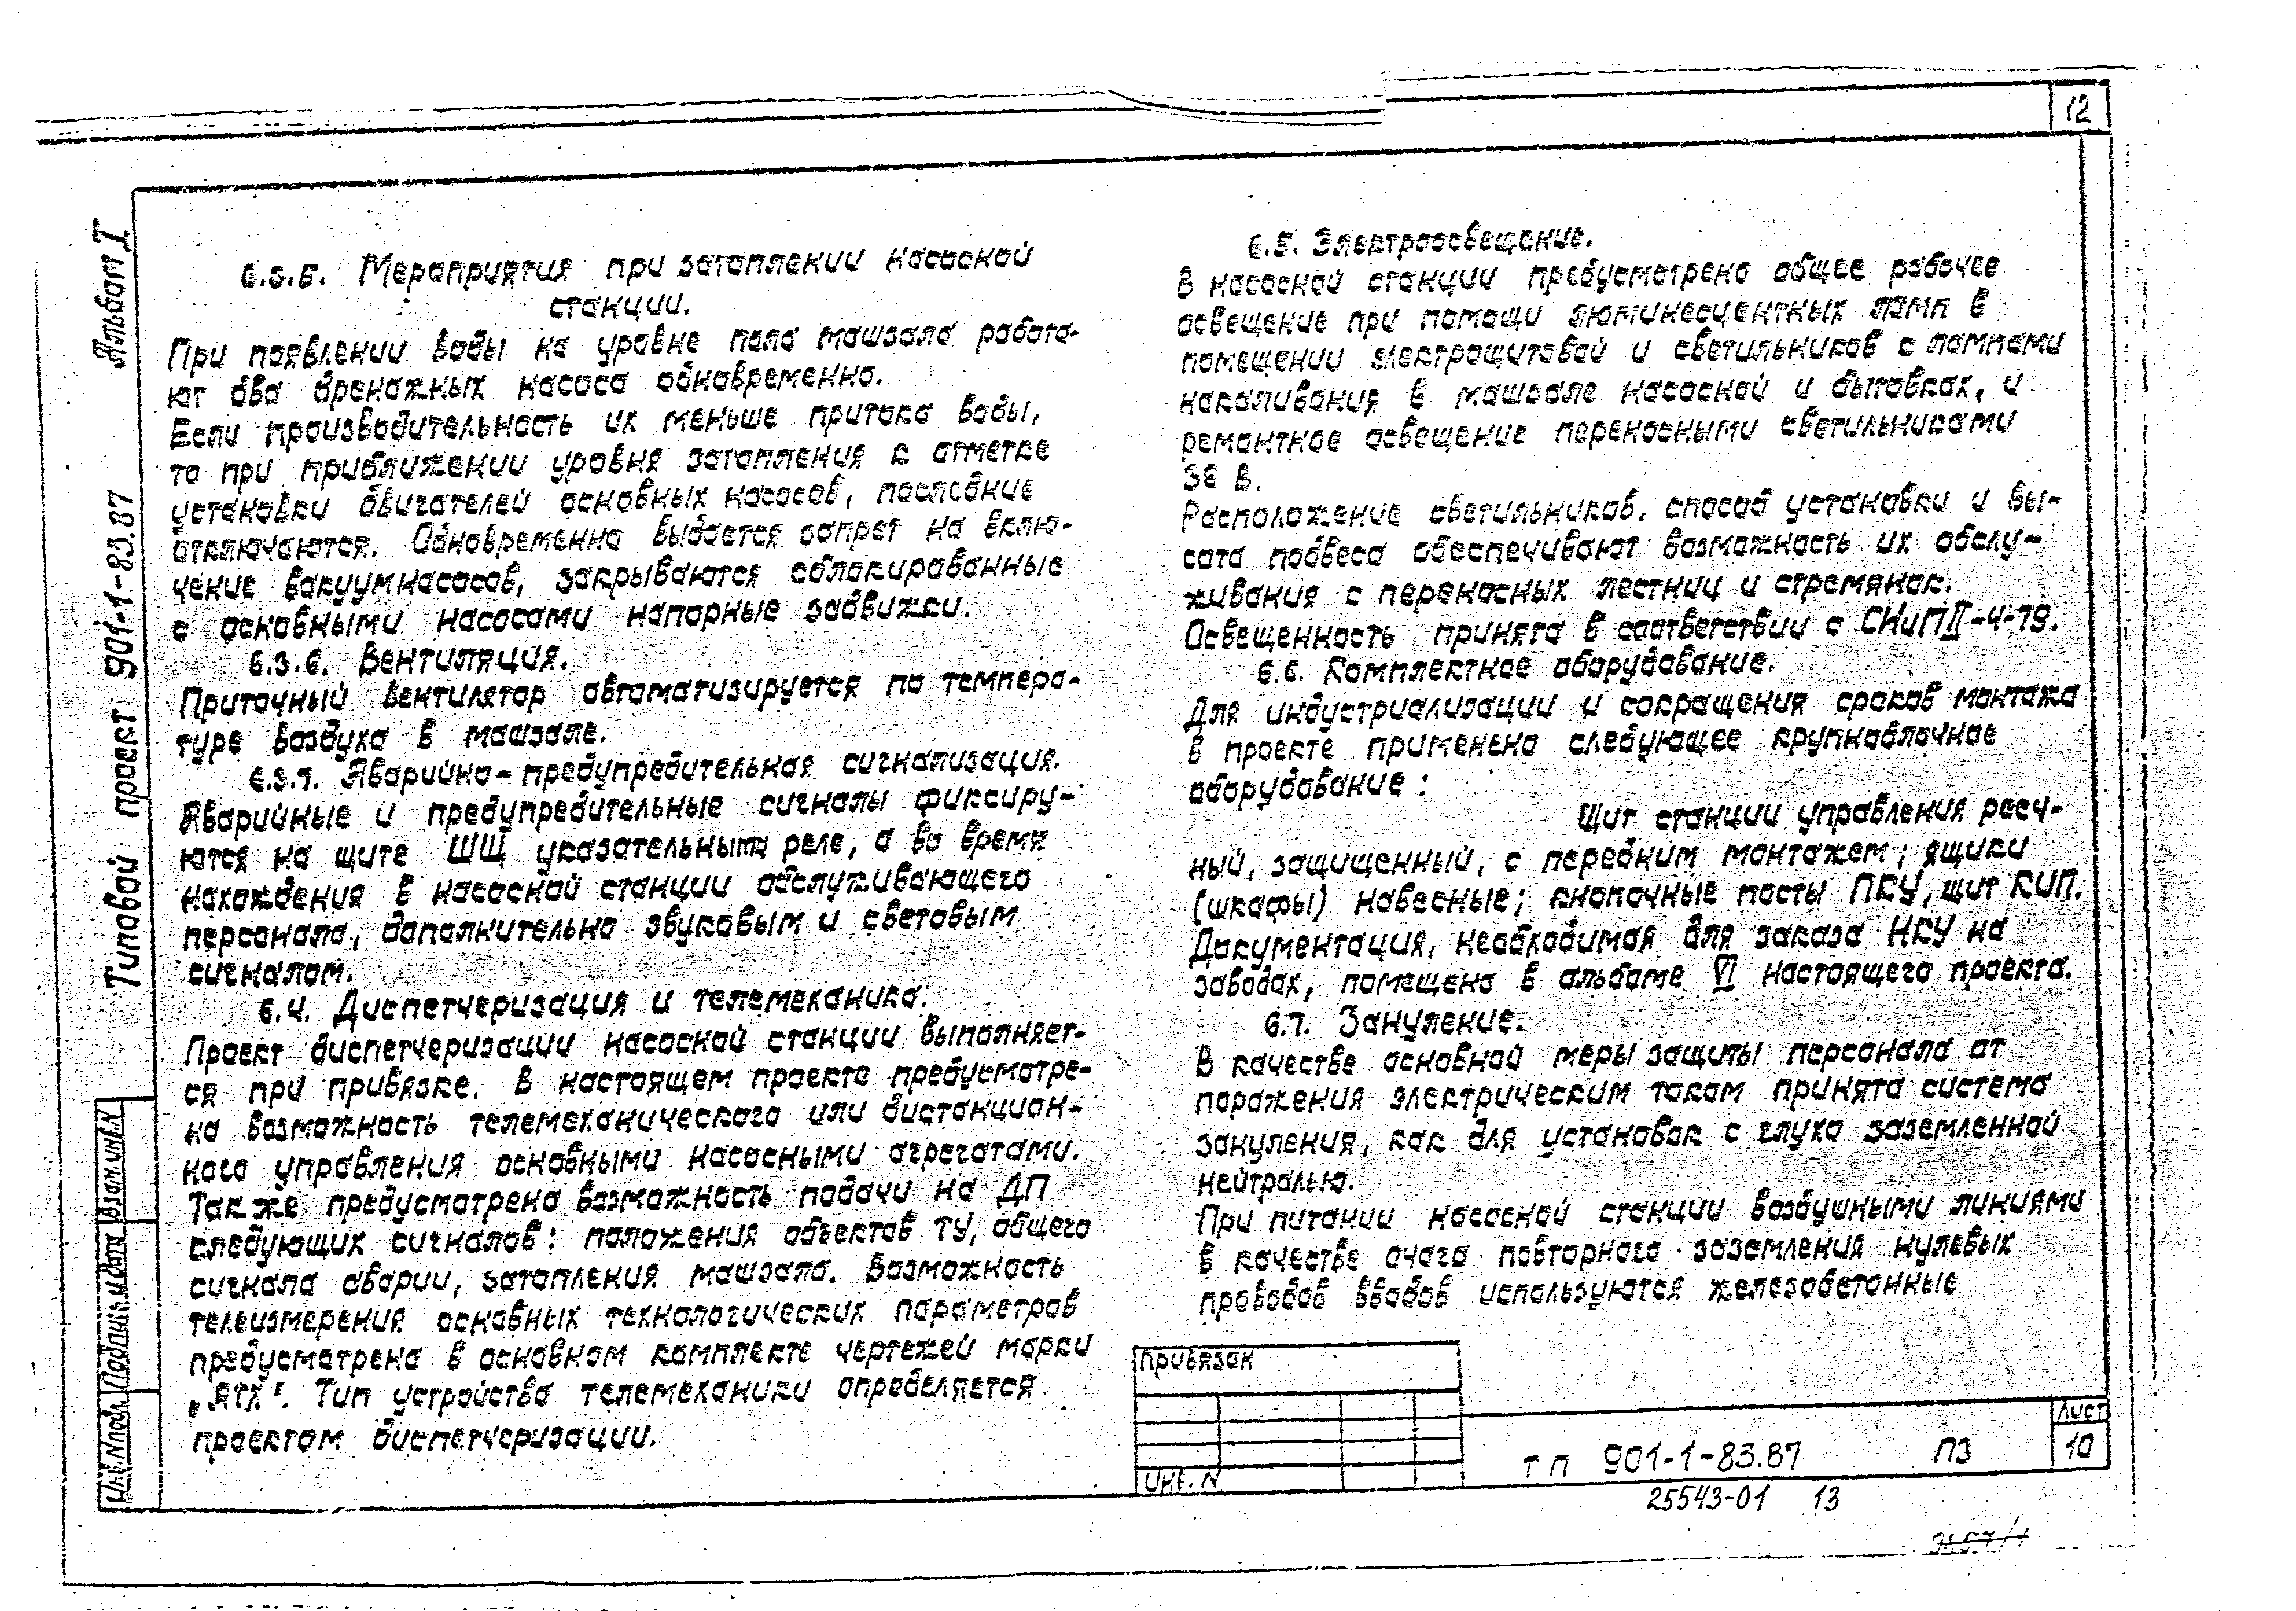 12
Альбом I
Типовой проект 901-1-83.87
6.3.5. Мероприятия при затоплении насосной
станции.
При появлении воды на уровне пола машзала работа-
ют два дренажных насоса одновременно.
Если производительность их меньше притока воды,
то при приближении уровня затопления к отметке
установки двигателей основных насосов, последние
отключаются. Одновременно выдается запрет на вклю-
чение вакуумнасосов, закрываются сблокированные
с основными насосами напорные задвижки.
6.3.6. Вентиляция.
Приточный вентилятор автоматизируется по темпера-
туре воздуха в машзале.
6.3.7. Аварийно-предупредительная сигнализация.
Аварийные и предупредительные сигналы фиксиру-
ются на щите ШЩ указательными реле, а во время
нахождения в насосной станции обслуживающего
персонала, дополнительно звуковым и световым
сигналом.
6.4. Диспетчеризация и телемеханика.
Проект диспетчеризации насосной станции выполняет-
ся при привязке. В настоящем проекте предусмотре-
на возможность телемеханического или дистанцион-
ного управления основными насосными агрегатами.
Также предусмотрена возможность подачи на ДП
следующих сигналов: положения объектов ТУ, общего
сигнала аварии, затопления машзала. Возможность
телеизмерения основных технологических параметров
предусмотрена в основном комплекте чертежей марки
„АТХ". Тип устройства телемеханики определяется
проектом диспетчеризации.
6.5. Электроосвещение.
В насосной станции предусмотрено общее рабочее
освещение при помощи люминесцентных ламп в
помещении электрощитовой и светильников с лампами
накаливания в машзале насосной и бытовках, и
ремонтное освещение переносными светильниками
36 В.
Расположение светильников, способ установки и вы-
сота подвеса обеспечивают возможность их обслу-
живания с переносных лестниц и стремянок.
Освещенность принята в соответствии с СНиП II-4-79.
6.6. Комплектное оборудование.
Для индустриализации и сокращения сроков монтажа
в проекте применено следующее крупноблочное
оборудование:
Щит станции управления рееч-
ный, защищенный, с передним монтажем; ящики
(шкафы) навесные; кнопочные посты ПКУ, щит КИП.
Документация, необходимая для заказа НКУ на
заводах, помещена в альбоме VI настоящего проекта.
6.7. Зануление.
В качестве основной меры защиты персонала от
поражения электрическим током принята система
зануления, как для установок с глухо заземленной
нейтралью.
При питании насосной станции воздушными линиями
в качестве очага повторного заземления нулевых
проводов вводов используются железобетонные
Привязан
Инв. N
ТП 901-1-83.87 ПЗ
Лист
10
25543-01 13
Инв.Nподл. Подпись и дата Взам.инв.N